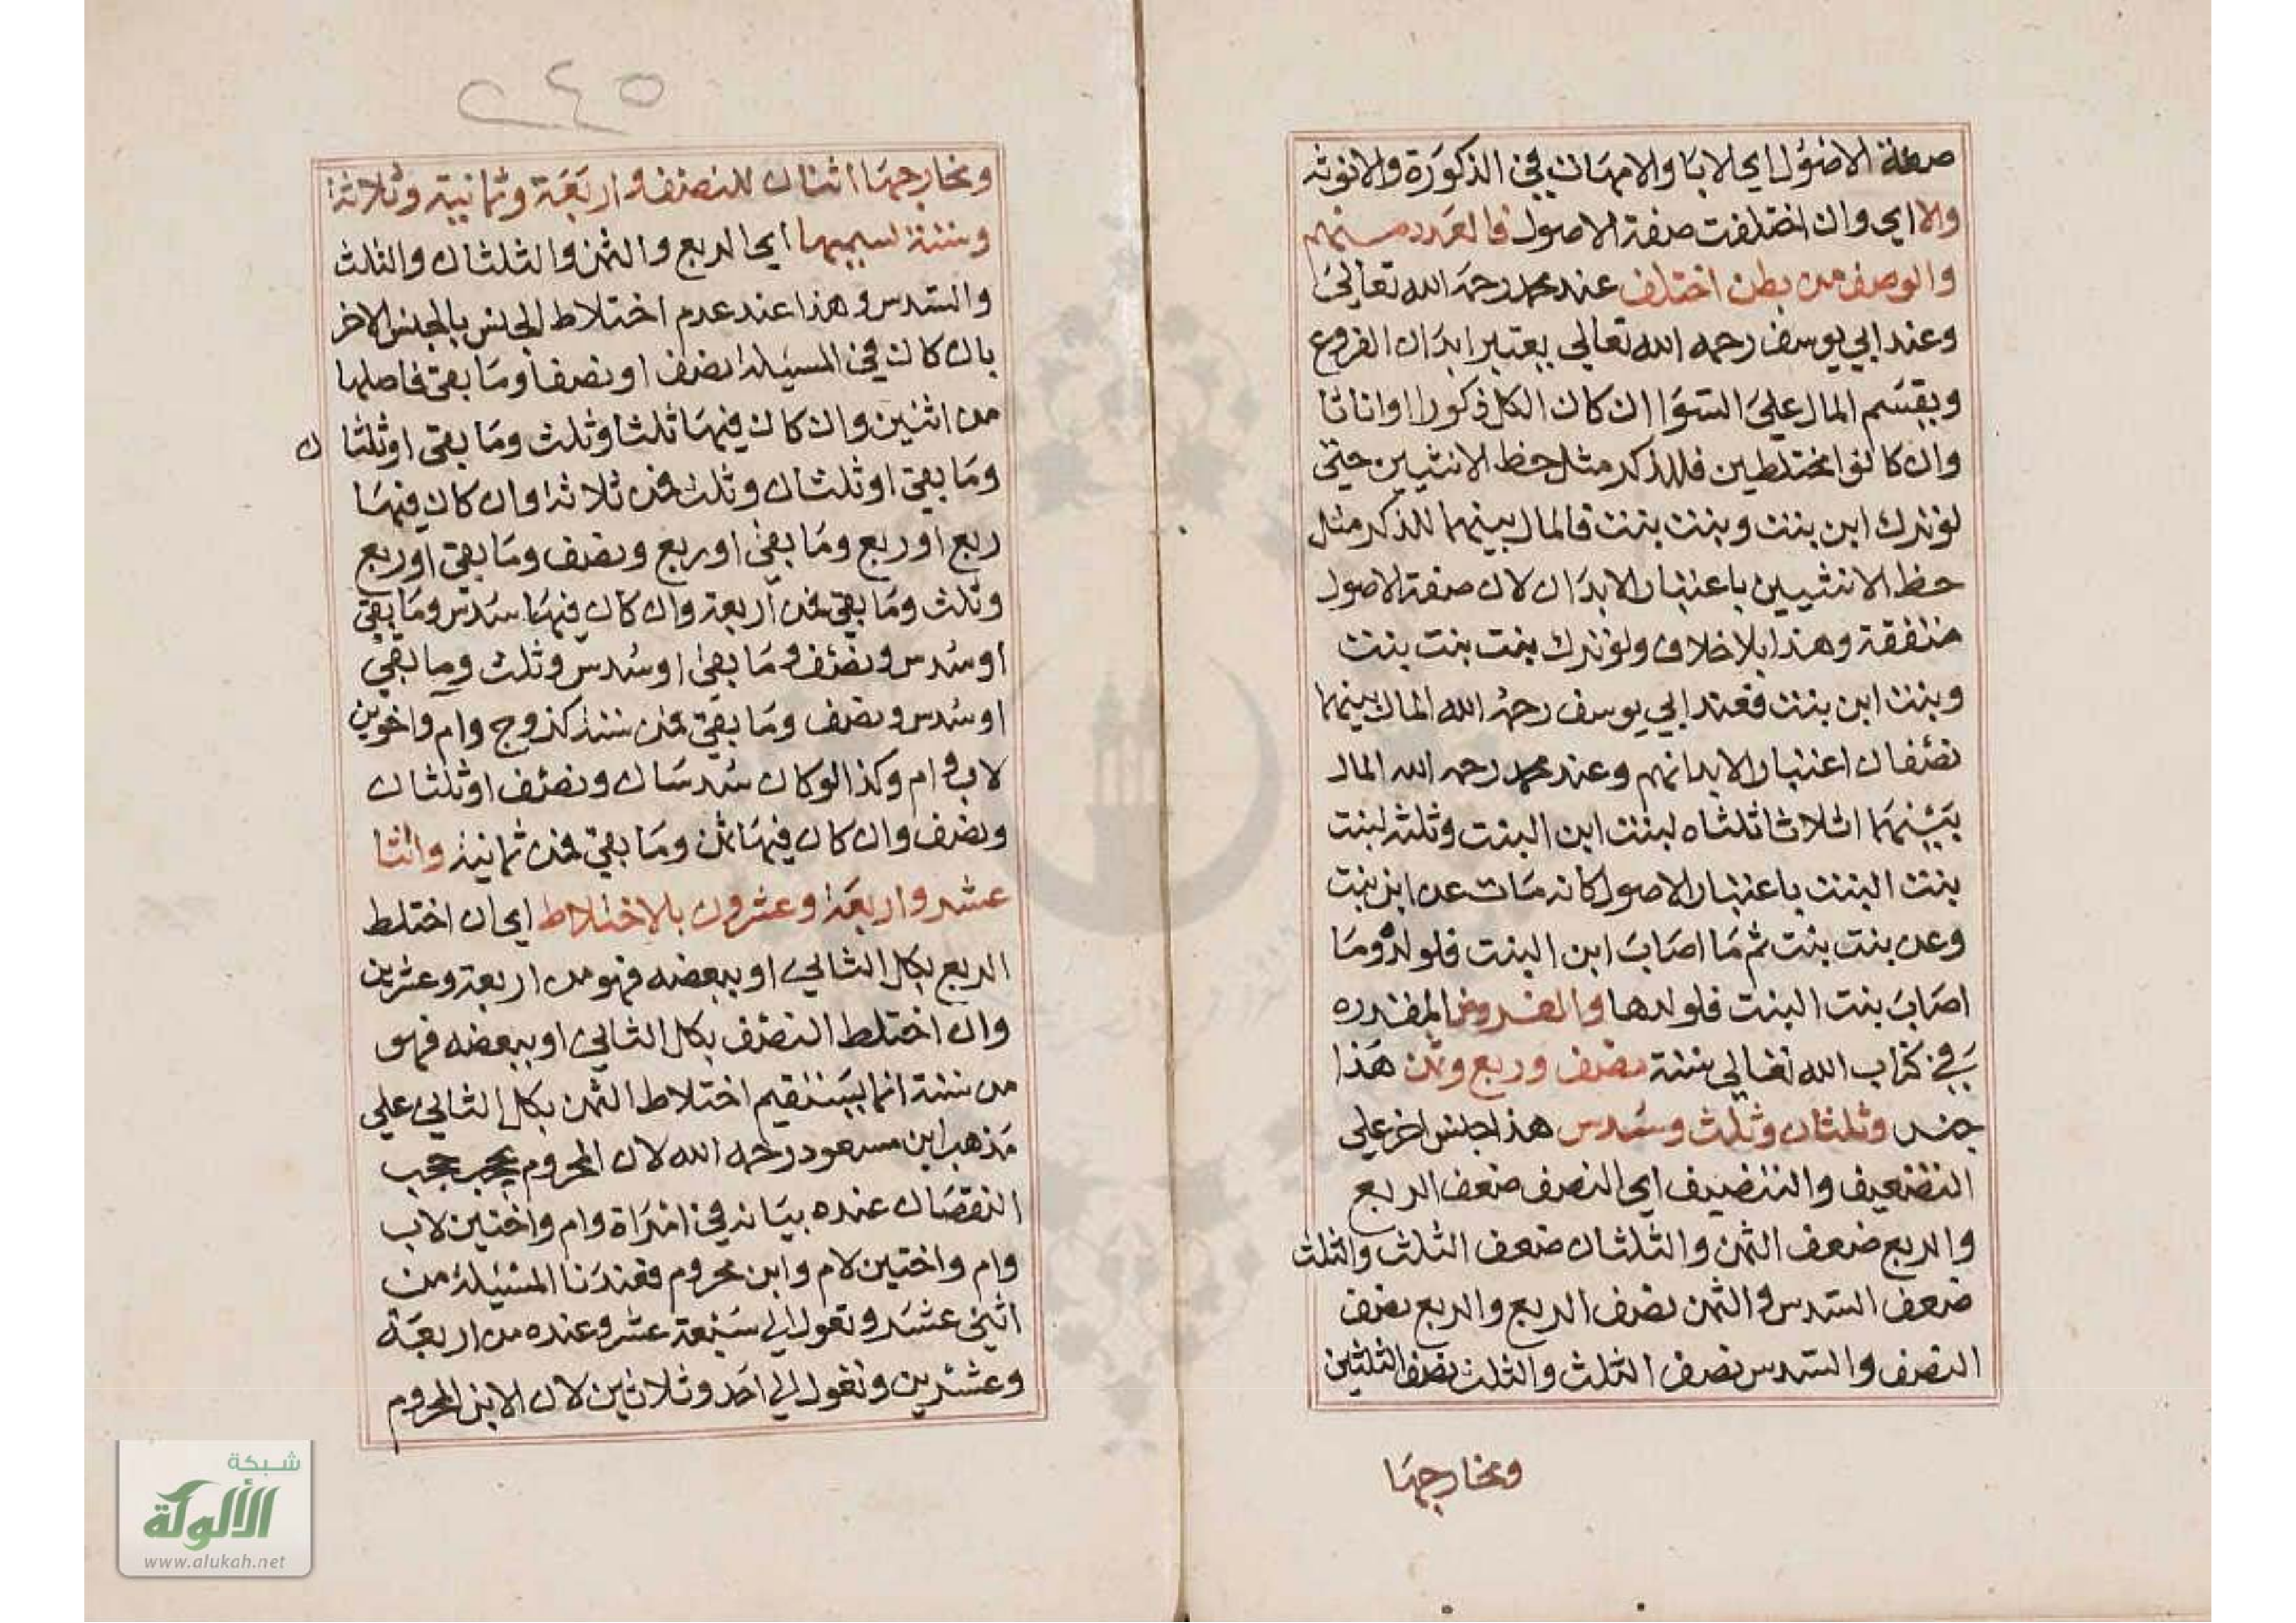 صفة الاصول اي الابا والامهات في الذكورة والانوثه
والا اي وان اختلفت صفة الاصول فالعدد منهم
والوصف من بطن اختلف عند محمد رحمه الله تعالي
وعند ابي يوسف رحمه الله تعالي يعتبر ابدان الفروع
ويقسم المال علي السوا ان كان الكل ذكورا او اناثا
وان كانوا مختلطين فللذكر مثل حظ الانثيين حتي
لو ترك ابن بنت وبنت بنت فالمال بينهما للذكر مثل
حظ الانثيين باعتبار الابدان لان صفة الاصول
متفقة وهذا بلا خلاف ولو ترك بنت بنت بنت
وبنت ابن بنت فعند ابي يوسف رحمه الله المال بينهما
نصفان اعتبار الابدانهم وعند محمد رحمه الله المال
بينهما اثلاثا ثلثاه لبنت ابن البنت وثلثه لبنت
بنت البنت باعتبار الاصول كانه مات عن ابن بنت
وعن بنت بنت ثم ما اصاب ابن البنت فلولده وما
اصاب بنت البنت فلولدها والفروض المقدره
في كتاب الله تعالي ستة نصف وربع وثمن هذا
جنس وثلثان وثلث وسدس هذا جنس اخر علي
التضعيف والتنصيف اي النصف ضعف الربع
والربع ضعف الثمن والثلثان ضعف الثلث والثلث
ضعف السدس والثمن نصف الربع والربع نصف
النصف والسدس نصف الثلث والثلث نصف الثلثين
ومخارجها
٢٤٥
ومخارجها اثنان للنصف واربعة وثمانية وثلاثة
وستة لسميها اي الربع والثمن والثلثان والثلث
والسدس وهذا عند عدم اختلاط الجنس بالجنس الاخر
بان كان في المسيلة نصف او نصف وما بقي فاصلها
من اثنين وان كان فيها ثلث او ثلث وما بقي او ثلثان
وما بقي او ثلثان وثلث فمن ثلاثة وان كان فيها
ربع او ربع وما بقي او ربع ونصف وما بقي او ربع
وثلث وما بقي فمن اربعة وان كان فيها سدس وما بقي
او سدس ونصف وما بقي او سدس وثلث وما بقي
او سدس ونصف وما بقي فمن ستة كزوج وام واخوين
لاب وام وكذا لو كان سدسان ونصف او ثلثان
ونصف وان كان فيها ثمن وما بقي فمن ثمانية واثنا
عشر واربعة وعشرون بالاختلاط اي ان اختلط
الربع بكل الثاني او ببعضه فهو من اربعة وعشرين
وان اختلط النصف بكل الثاني او ببعضه فهو
من ستة انما يستقيم اختلاط الثمن بكل الثاني علي
مذهب ابن مسعود رحمه الله لان المحروم يحجب حجب
النقصان عنده بيانه في امراة وام واختين لاب
وام واختين لام وابن محروم فعندنا المسئيلة من
اثني عشر وتعول الي سبعة عشر وعنده من اربعة
وعشرين وتعول الي احد وثلاثين لان الابن المحروم
شبكة
الألوكة
www.alukah.net